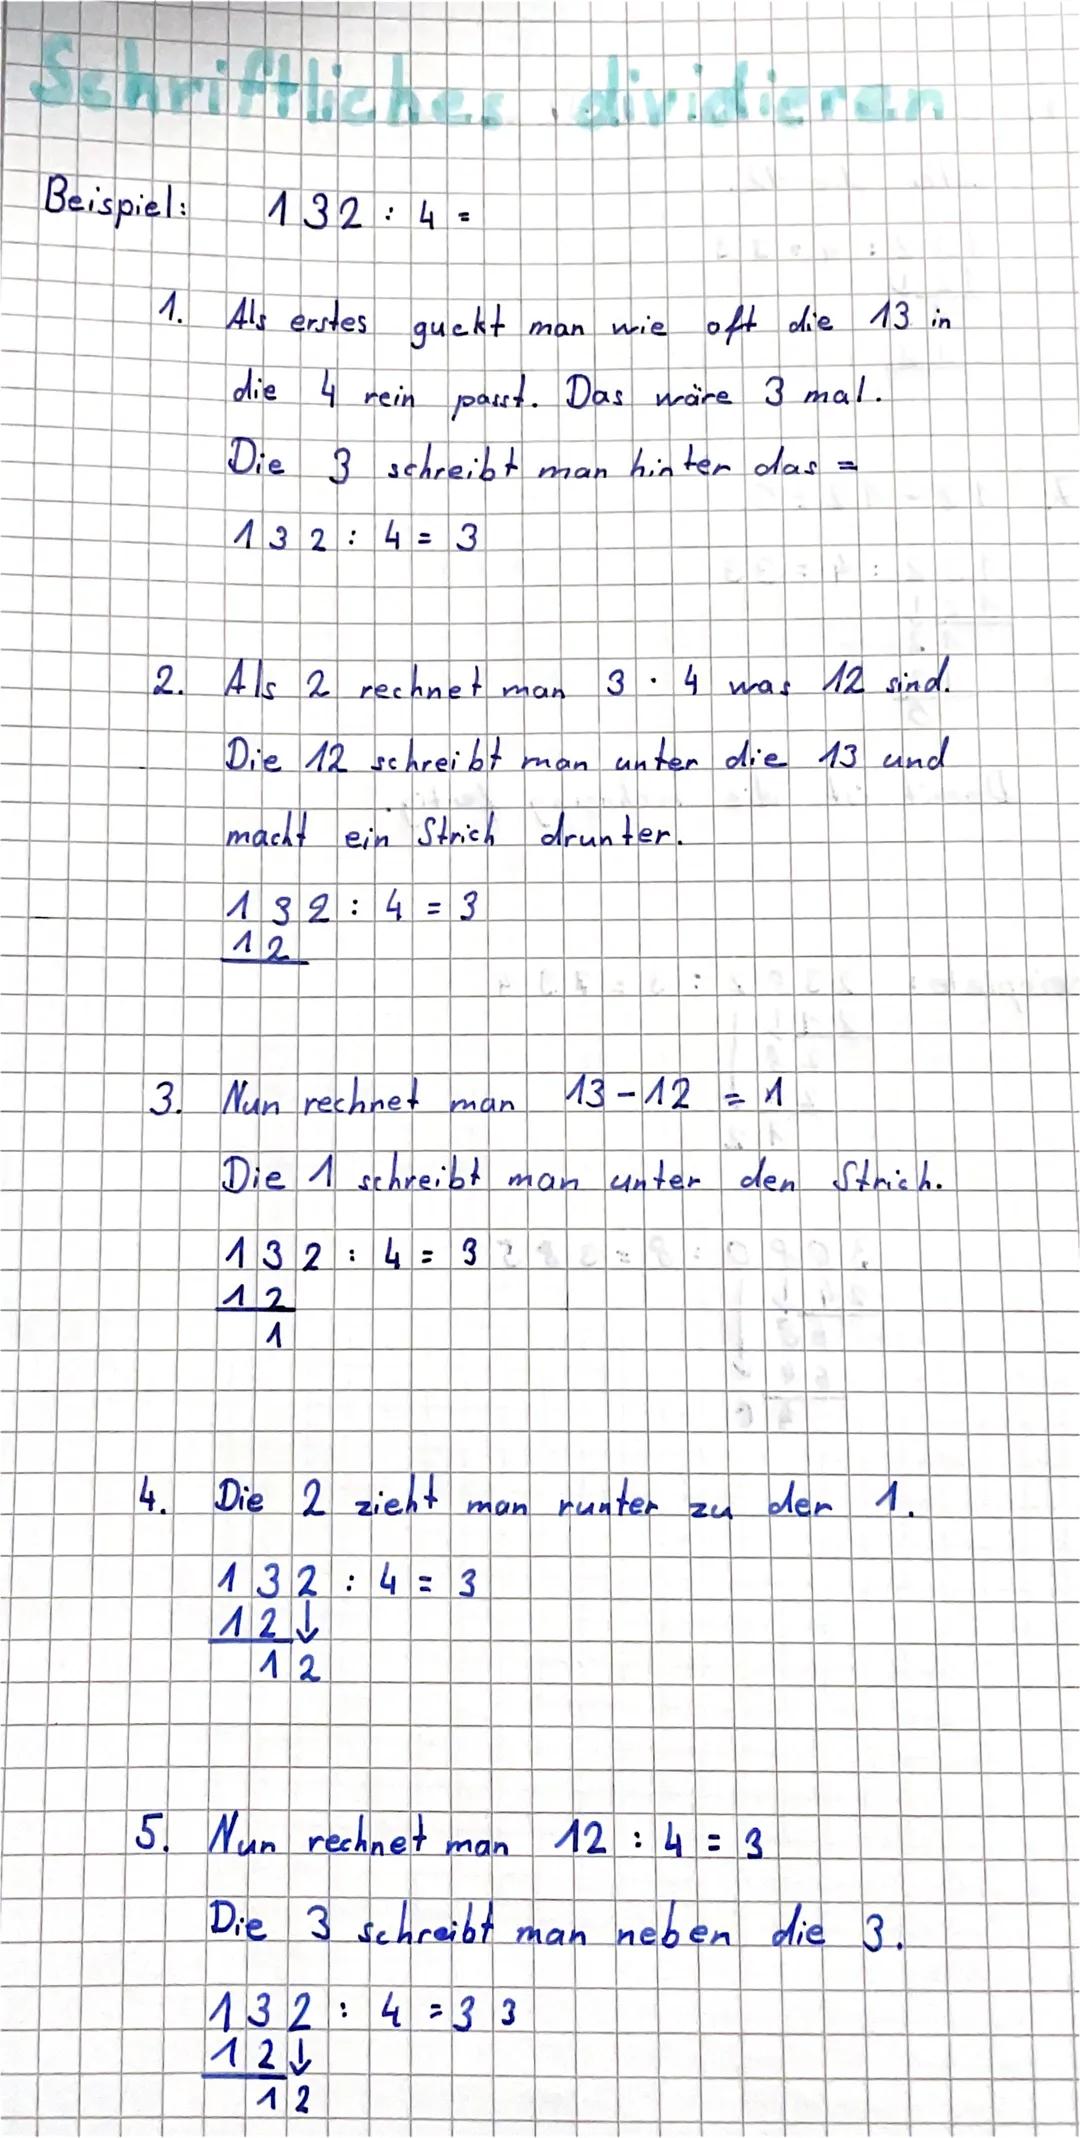 Schriftliches dividieren
Beispiel: 132 : 4 =
1. Als erstes guckt man wie oft die 13 in
die 4 rein passt. Das wäre 3 mal.
Die 3 schreibt man hinter das =
132 : 4 = 3
2. Als 2 rechnet man 3 · 4 was 12 sind.
Die 12 schreibt man unter die 13 und
macht ein Strich drunter.
132 : 4 = 3
12
3. Nun rechnet man 13 - 12 = 1
Die 1 schreibt man unter den Strich.
132 : 4 = 3
12
1
4. Die 2 zieht man runter zu der 1.
132 : 4 = 3
12↓
12
5. Nun rechnet man 12 : 4 = 3
Die 3 schreibt man neben die 3.
132 : 4 = 33
12↓
12